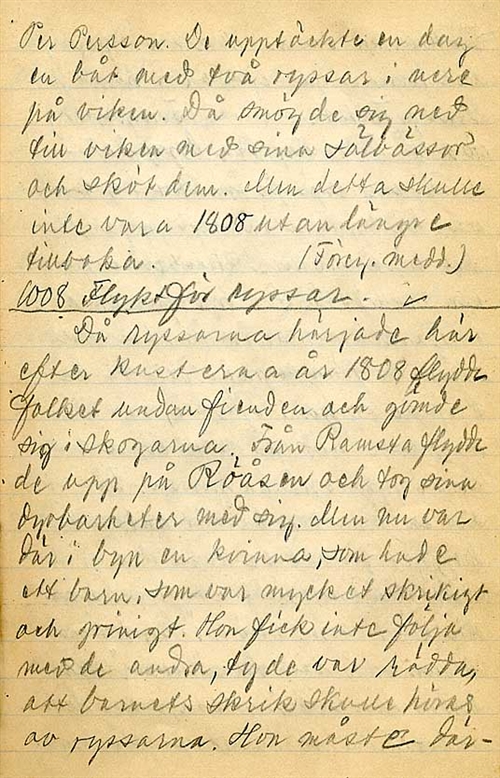 Per Persson. De upptäckte en dag
en båt med två ryssar i nere
på viken. Då smög de sig ned
till viken med sina sälbössor
och sköt dem. Men detta skulle
inte vara 1808 utan längre
tillbaka. (Föreg. medd.)
1008 Flykt för ryssar.
Då ryssarna härjade här
efter kusterna år 1808 flydde
folket undan fienden och gömde
sig i skogarna. Från Ramsta flydde
de upp på Rödåsen och tog sina
dyrbarheter med sig. Men nu var
där i byn en kvinna, som hade
ett barn, som var mycket skrikigt
och grinigt. Hon fick inte följa
med de andra, ty de var rädda,
att barnets skrik skulle höras
av ryssarna. Hon måste där-